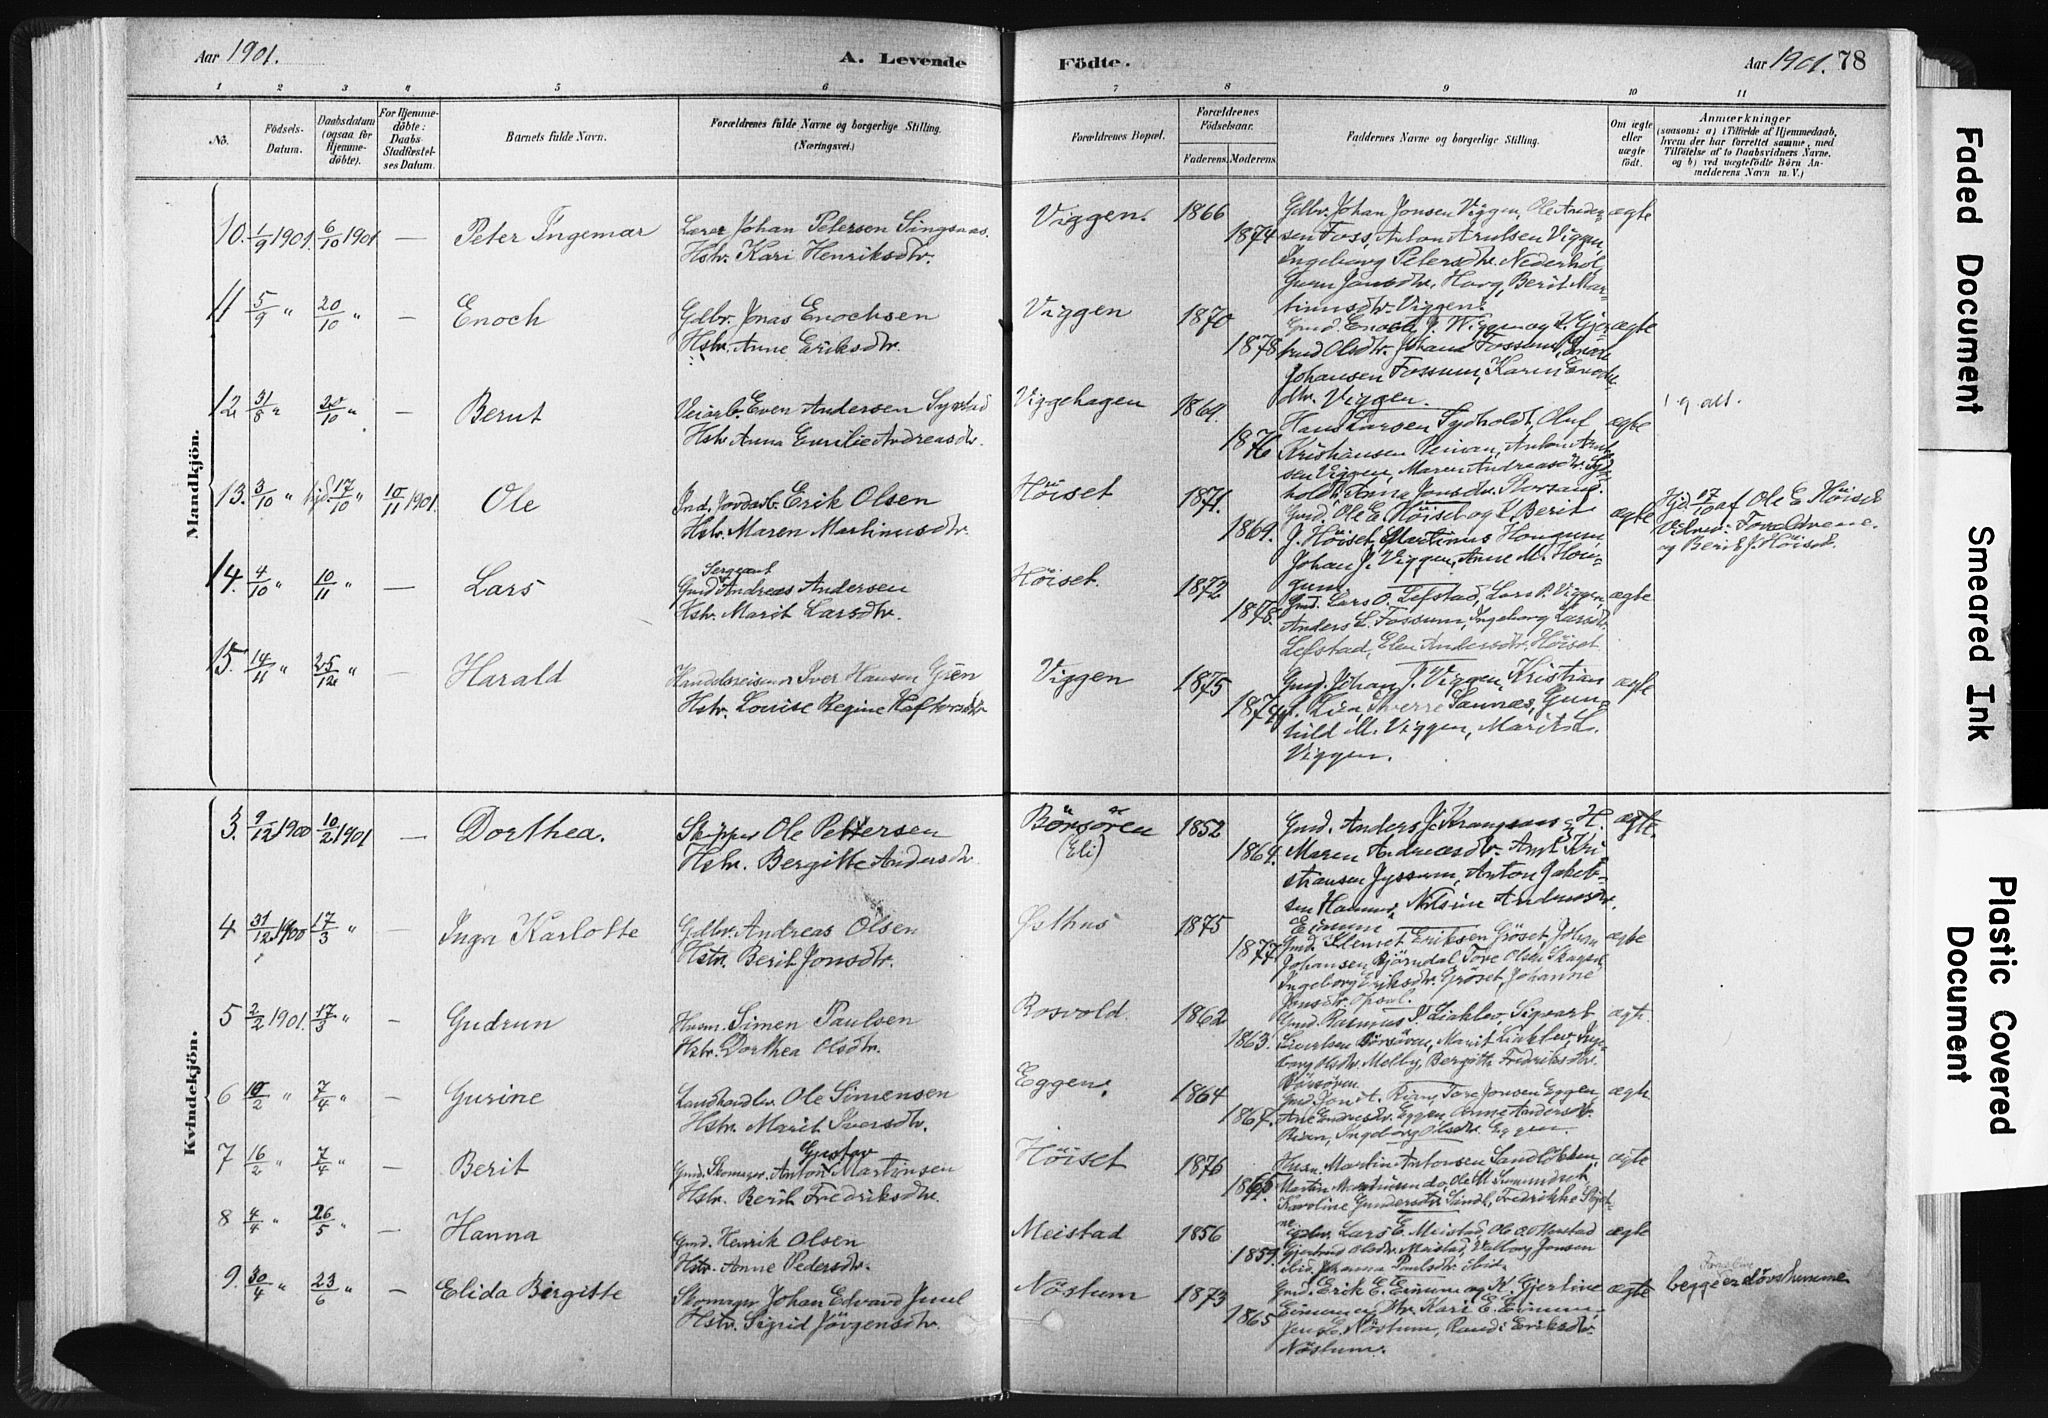 Aar 1901.
A. Levende
Födte.
Aar 1901. 78
1 2 3 4 5 6 7 8 9 10 11
No.
Födsels-Datum.
Daabsdatum (ogsaa for Hjemme-döbte).
For Hjemme-döbte: Daabs Stadfæstel-ses Datum.
Barnets fulde Navn.
Forældrenes fulde Navne og borgerlige Stilling.
(Næringsvei.)
Forældrenes Bopæl.
Forældrenes Födselsaar.
Faderens. Moderens.
Faddernes Navne og borgerlige Stilling.
Om ægte eller uægte födt.
Anmærkninger
(saasom: a) i Tilfælde af Hjemmedaab,
hvem der har forrettet samme, med
Tilföielse af to Daabsvidners Navne,
og b) ved uægtefödte Börn An-
melderens Navn m. V.)
Mandkjön.
10. 1/9 1901. 6/10 1901. — Peter Ingemar
Lærer Johan Petersen Singsaas.
Hstr. Kari Henriksdtr.
Viggen. 1866 1874
Gdbr. Johan Jonsen Viggen, Ole Ander-
sen Foss, Anton Arntsen Viggen,
Ingeborg Petersdtr. Nederhol
Jonsdtr. Horg, Berit Mar-
tinusdtr. Viggen.
ægte
11 5/9 " 20/10 " — Enoch
Gdbr. Jonas Enochsen
Hstr. Anne Eriksdtr.
Viggen 1870 1878
Gmd. Enoch J. Viggen og K. Gjer-
trud Olsdtr. Johans Fossum, Enok
Johansen Fossum, Karen Enoks-
dtr. Viggen.
ægte
12 31/8 " 20/10 " — Bernt
Veiarb. Even Andersen Sydstad
Hstr. Anna Emilie Andreasdtr.
Viggehagen 1869. 1876
Hans Larsen Sydholdt, Oluf
Kristiansen, Anton Arnt-
sen Viggen, Maren Andreasdtr. Syd-
holdt, Anna Jonsdtr. Storsand.
ægte
1 g. alt.
13. 3/10 " hjd. 17/10 " 10/11 1901. Ole
Ind. Jordarb. Erik Olsen
Hstr. Maren Martinusdtr.
Höiset 1871. 1869.
Gmd. Ole E. Höiset og K. Berit
J. Höiset, Martinus Hongum
Johan J. Viggen, Anne M. Hon-
gum
ægte
Hjd. 17/10 af Ole E. Höiset
Vidner: Forældrene
og Berit J. Höiset.
14. 4/10 " 10/11 " — Lars
Sergeant
Gmd Andreas Andersen
Hstr. Marit Larsdtr.
Höiset. 1872 1878.
Gmd. Lars O. Lefstad, Lars P. Viggen,
Anders L. Fossum, Ingeborg Larsdtr.
Lefstad, Elen Andersdtr. Höiset
ægte
15. 14/11 " 25/12 " — Harald
Handelsreisende Iver Hansen Grön
Hstr. Louise Regine Haftorsdtr
Viggen 1875 1874
Gmd. Johan J. Viggen, Kristian
Lien, Sverre Saunæs, Gun-
hild M. Viggen, Marit L.
Viggen.
ægte
Kvindekjön.
3. 9/12 1900 10/2 1901 — Dorthea.
Skipper Ole Pettersen
Hstr. Bergitte Andersdtr.
Börsören
(Eli)
1852 1864.
Gmd. Anders J. H.
Maren Andreasdtr. Arnt Kri-
stiansen Jyssum, Anton Jakob-
sen Hammer, Nilsine Andersdtr.
Eimum
ægte.
4 31/12 1900 17/3 " — Inga Karlotte
Gdbr. Andreas Olsen
Hstr. Berit Jonsdtr.
Østhus 1875 1877
Gmd. Klemet Eriksen Gröset, Johan
Johansen Björndal, Tore Olsen Skagen,
Ingeborg Eriksdtr. Gröset, Johanne
Jensdtr. Opsal.
ægte
5 2/2 1901. 17/3 " — Gudrun
Husm. Simen Paulsen
Hstr. Dorthea Olsdtr.
Rosvold. 1862 1863.
Gmd. Rasmus P. Liaklev, Sigvart
Sivertsen Börsören, Marit Liaklev, Inge-
borg Olsdtr. Melby, Bergitte Fredriksdtr.
Börsören
ægte.
6 10/2 " 7/4 " — Gurine
Landhandler Ole Simensen
Hstr. Marit Iversdtr.
Eggen. 1864 1867.
Gmd. Jon A. Rian, Tore Jonsen Eggen,
Ane Endresdtr. Eggen, Anne Andersdtr.
Rian, Ingeborg Olsdtr. Eggen
ægte
7 16/2 " 7/4 " — Berit
Gustav
Gmd. Skomager. Anton Martinsen
Hstr. Berit Fredriksdtr.
Höiset 1876 1865
Husm. Martin Antonsen Sandlökken,
Martin Martinsen do, Ole M.
Karoline Gundersdtr. Fredrikke
ægte
8 4/4 " 26/5 " — Hanna
Gmd. Henrik Olsen
Hstr. Anne Pedersdtr.
Meistad 1856 1859.
Gdbr. Lars E. Meistad, Ole O. Meistad
Gjertrud Olsdtr. Meistad, Valborg Jonsen
ibid., Johanna Paulsdtr. ibid.
ægte
9. 30/4 " 23/6 " — Elida Birgitte
Skomager Johan Edvard Juul
Hstr. Sigrid Jörgensdtr.
Nöstum 1873 1865
Gmd. Erik E. Eimum og K. Gjertine
Eimum, Kari E. Eimum,
Jens L. Nöstum, Randi Eriksdtr.
Nöstum.
ægte
begge er dövstumme
Faded Document
Smeared Ink
Plastic Covered
Document